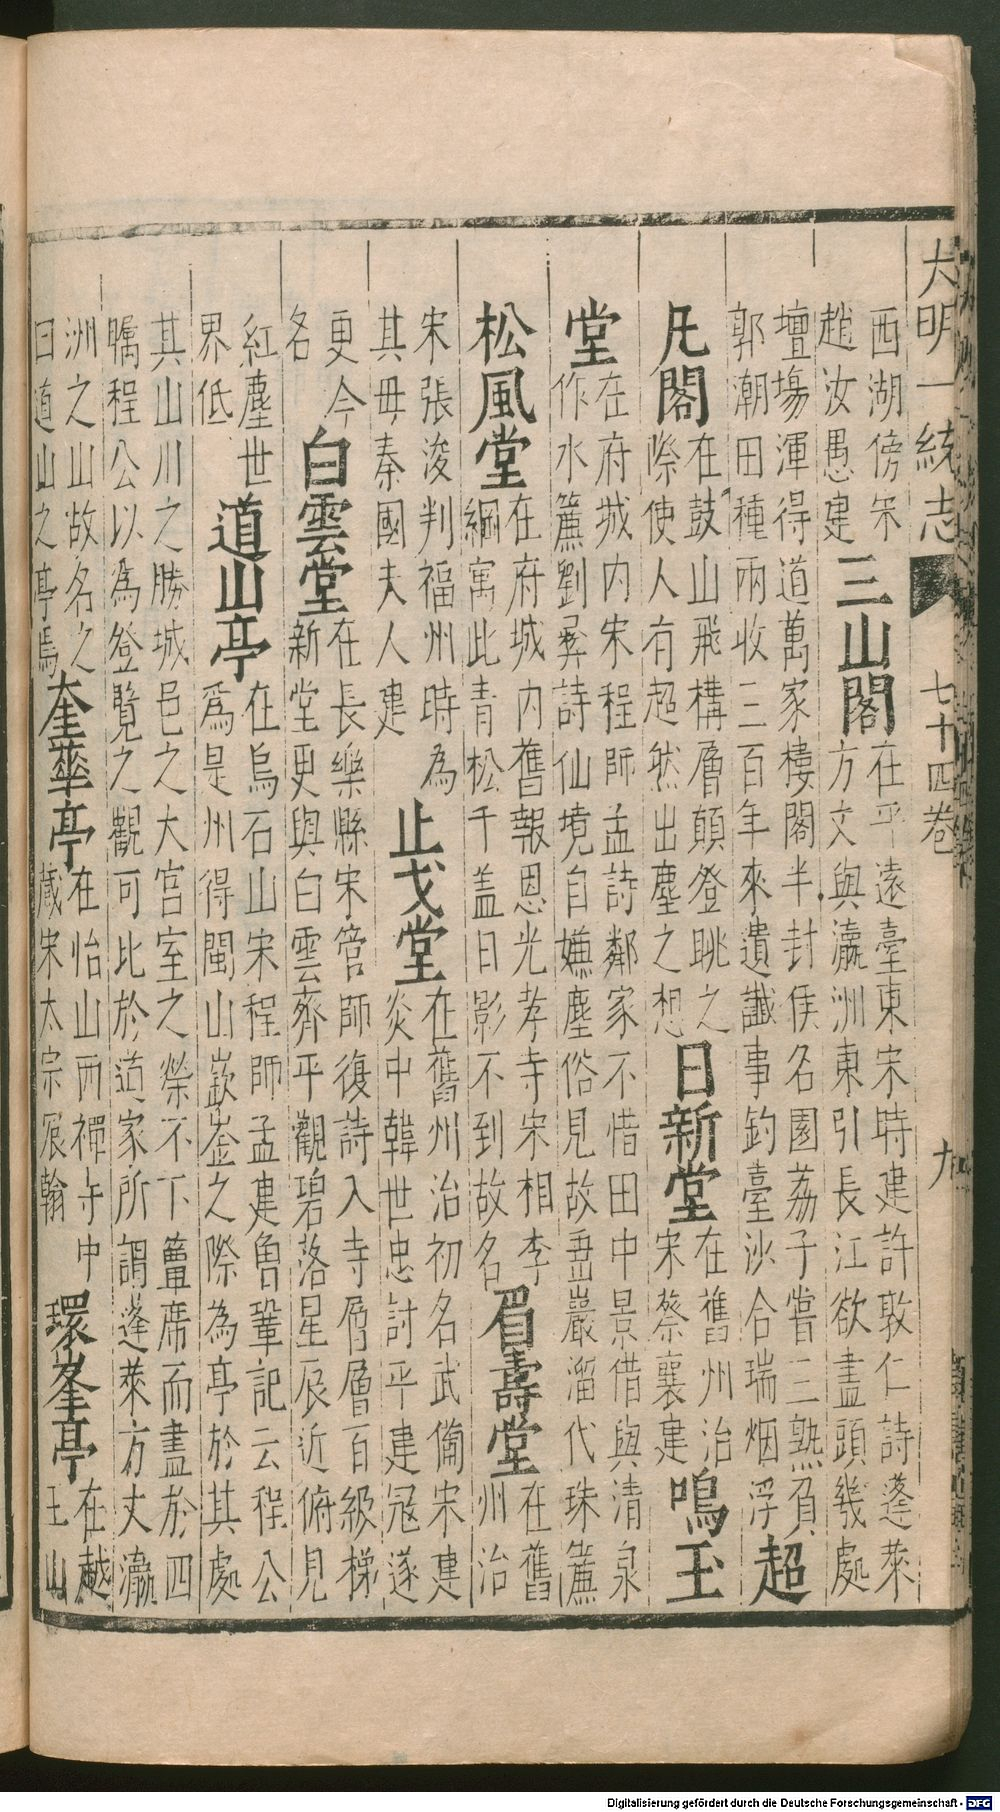 大明一統志 七十四卷 九
西湖傍宋
趙汝愚建
三山閣
在平遠臺東宋時建許敦仁詩蓬萊
方丈與瀛洲東引長江欲盡頭幾處
壇場渾得道萬家樓閣半封侯名園荔子嘗三熟負
郭潮田種兩收三百年來遺讖事釣臺沙合瑞烟浮
超
凡閣
在鼓山飛構層顛登眺之
際使人有超然出塵之想
日新堂
在舊州治
宋蔡襄建
鳴玉
堂
在府城内宋程師孟詩鄰家不惜田中景借與清泉
作水簾劉彞詩仙境自嫌塵俗見故垂巖溜代珠簾
松風堂
在府城内舊報恩光孝寺宋相李
綱寓此青松千盖日影不到故名
眉壽堂
在舊
州治
宋張浚判福州時為
其母秦國夫人建
止戈堂
在舊州治初名武備宋建
炎中韓世忠討平建冦遂
更今
名
白雲堂
在長樂縣宋管師復詩入寺層層百級梯
新堂更與白雲齊平觀碧落星辰近俯見
紅塵世
界低
道山亭
在烏石山宋程師孟建曾鞏記云程公
為是州得閩山嶔崟之際為亭於其處
其山川之勝城邑之大宮室之榮不下簟席而盡於四
矚程公以為登覽之觀可比於道家所謂蓬萊方丈瀛
洲之山故名之
曰道山之亭焉
奎華亭
在怡山西禪寺中
藏宋太宗宸翰
環峯亭
在越
王山
Digitalisierung gefördert durch die Deutsche Forschungsgemeinschaft - DFG